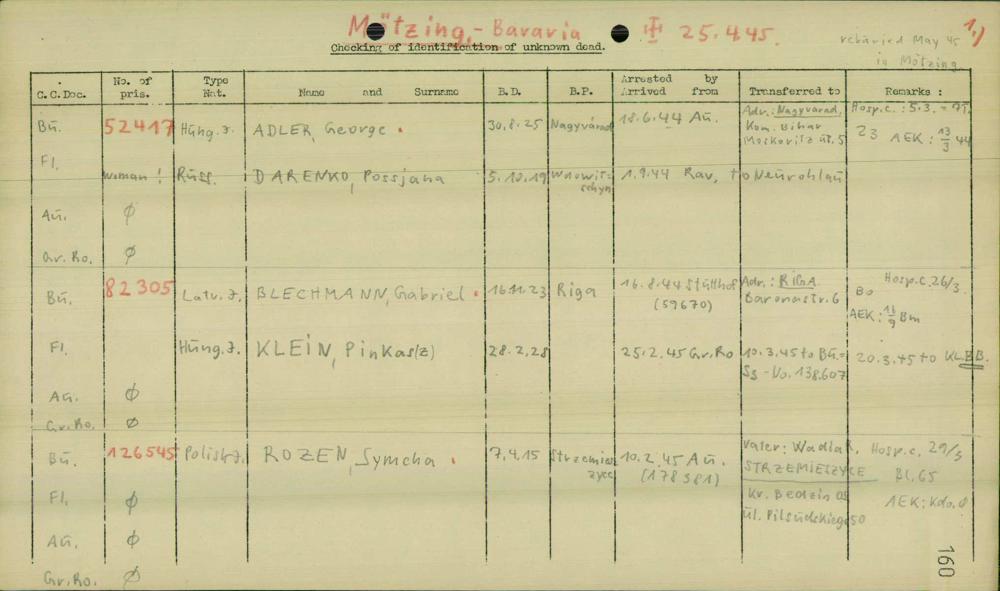 Mötzing, - Bavaria III 25.4.45. 1.)
Checking of identification of unknown dead.
reburied May 45
in Mötzing
C.C.Doc. No. of pris. Type Nat. Name and Surname B.D. B.P. Arrested by Arrived from Transferred to Remarks :
Bu. 52417 Hung.J. ADLER, George. 30.8.25 Nagyvárad 18.6.44 Au. Adr.: Nagyvárad, Hosp.c.: 5.3. =
Kom. Bihar 23 AEK: 13/3 44
Moskovitz ut. 5
Fl. woman! Russ. DARENKO, Possjana 5.10.19 1.9.44 Rav. to Neurohlau
Au. Ø
Gr.Ro. Ø
Bu. 82305 Latv.J. BLECHMANN, Gabriel. 16.11.23 Riga 16.8.44 Stutthof Adr.: RIGA Hosp.c. 26/3
(59670) Baronastr. 6 Bo
AEK: 11/9 Bm
Fl. Hung.J. KLEIN, Pinkas(z) 28.2.28 25.2.45 Gr.Ro 10.3.45 to Bu.= 20.3.45 to KL.B.B.
Ss-No. 138.607
Au. Ø
Gr.Ro. Ø
Bu. 126545 Polish J. ROZEN, Symcha. 7.4.15 Strzemieszyce 10.2.45 Au. Vater: Hosp.c. 29/3
(178381) STRZEMIESZYCE Bl. 65
Fl. Ø Kr. Bedzin OS AEK: Kdo. 0
ul. Pilsudskiego 50
Au. Ø
Gr.Ro. Ø
160